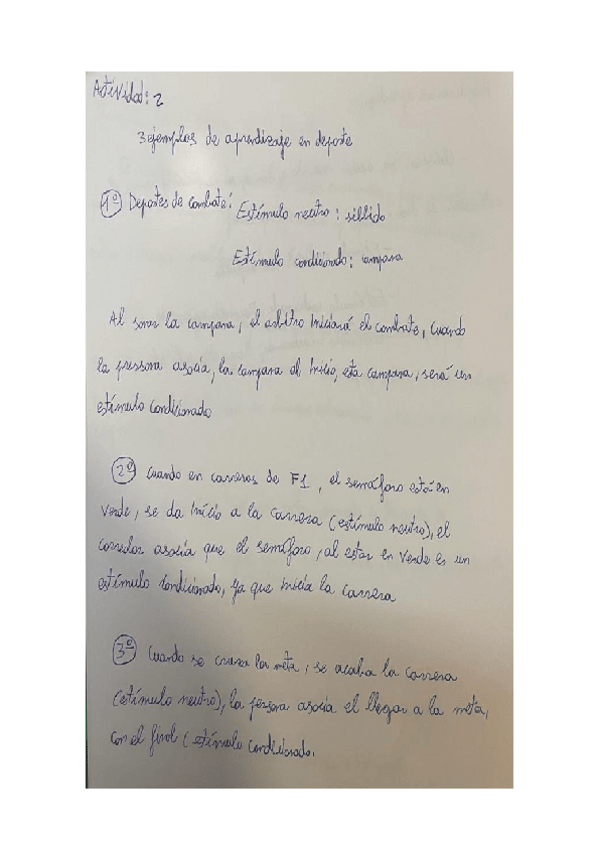 Actividad: 2
3 ejemplos de aprendizaje en deporte
1º Deportes de combate: Estímulo neutro: silbido
Estímulo condicionado: campana
Al sonar la campana, el arbitro iniciará el combate, cuando
la persona asocia, la campana al inicio, esta campana, será un
estímulo condicionado
2º Cuando en carreras de F1, el semáforo está en
Verde, se da inicio a la carrera (estímulo neutro), el
corredor asocia que el semáforo, al estar en verde es un
estímulo condicionado, ya que inicia la carrera
3º Cuando se cruza la meta, se acaba la carrera
(estímulo neutro), la persona asocia el llegar a la meta,
con el final (estímulo condicionado.